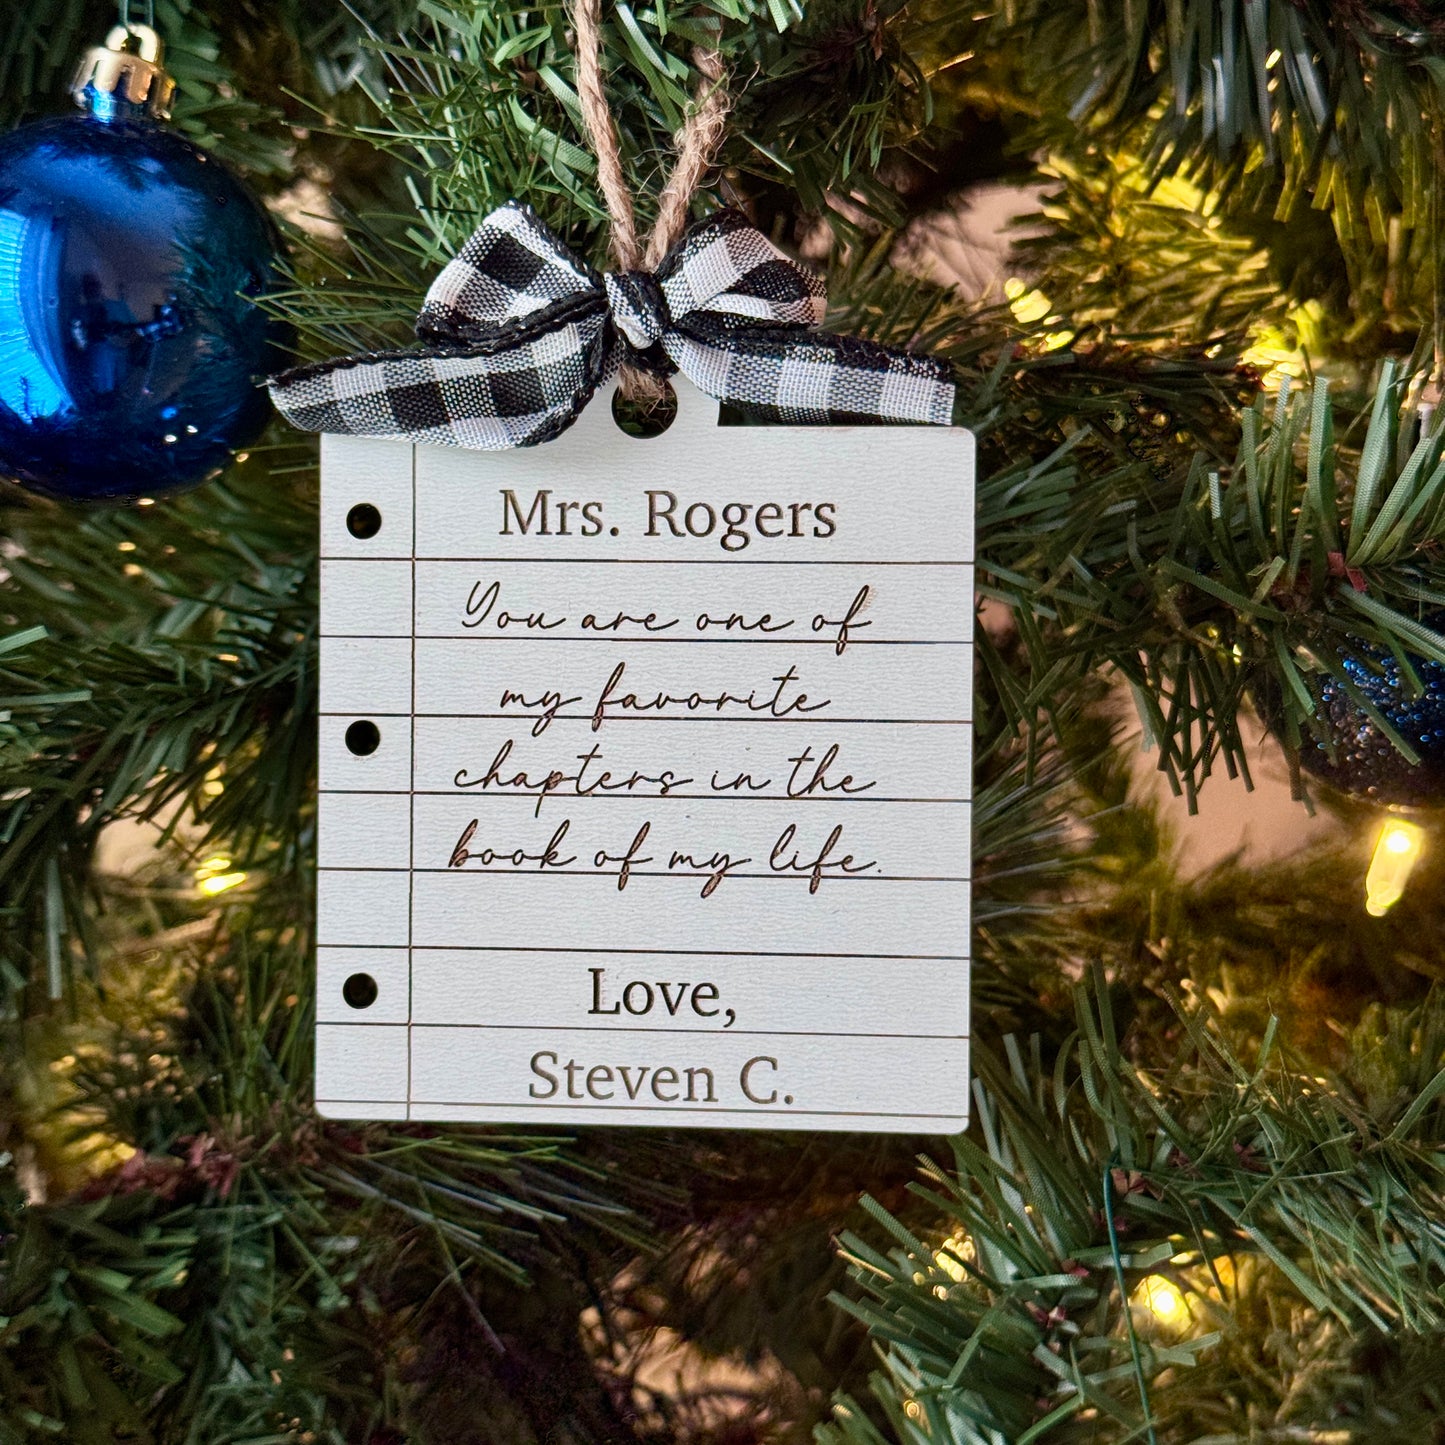 Mrs. Rogers
You are one of
my favorite
chapters in the
book of my life.
Love,
Steven C.